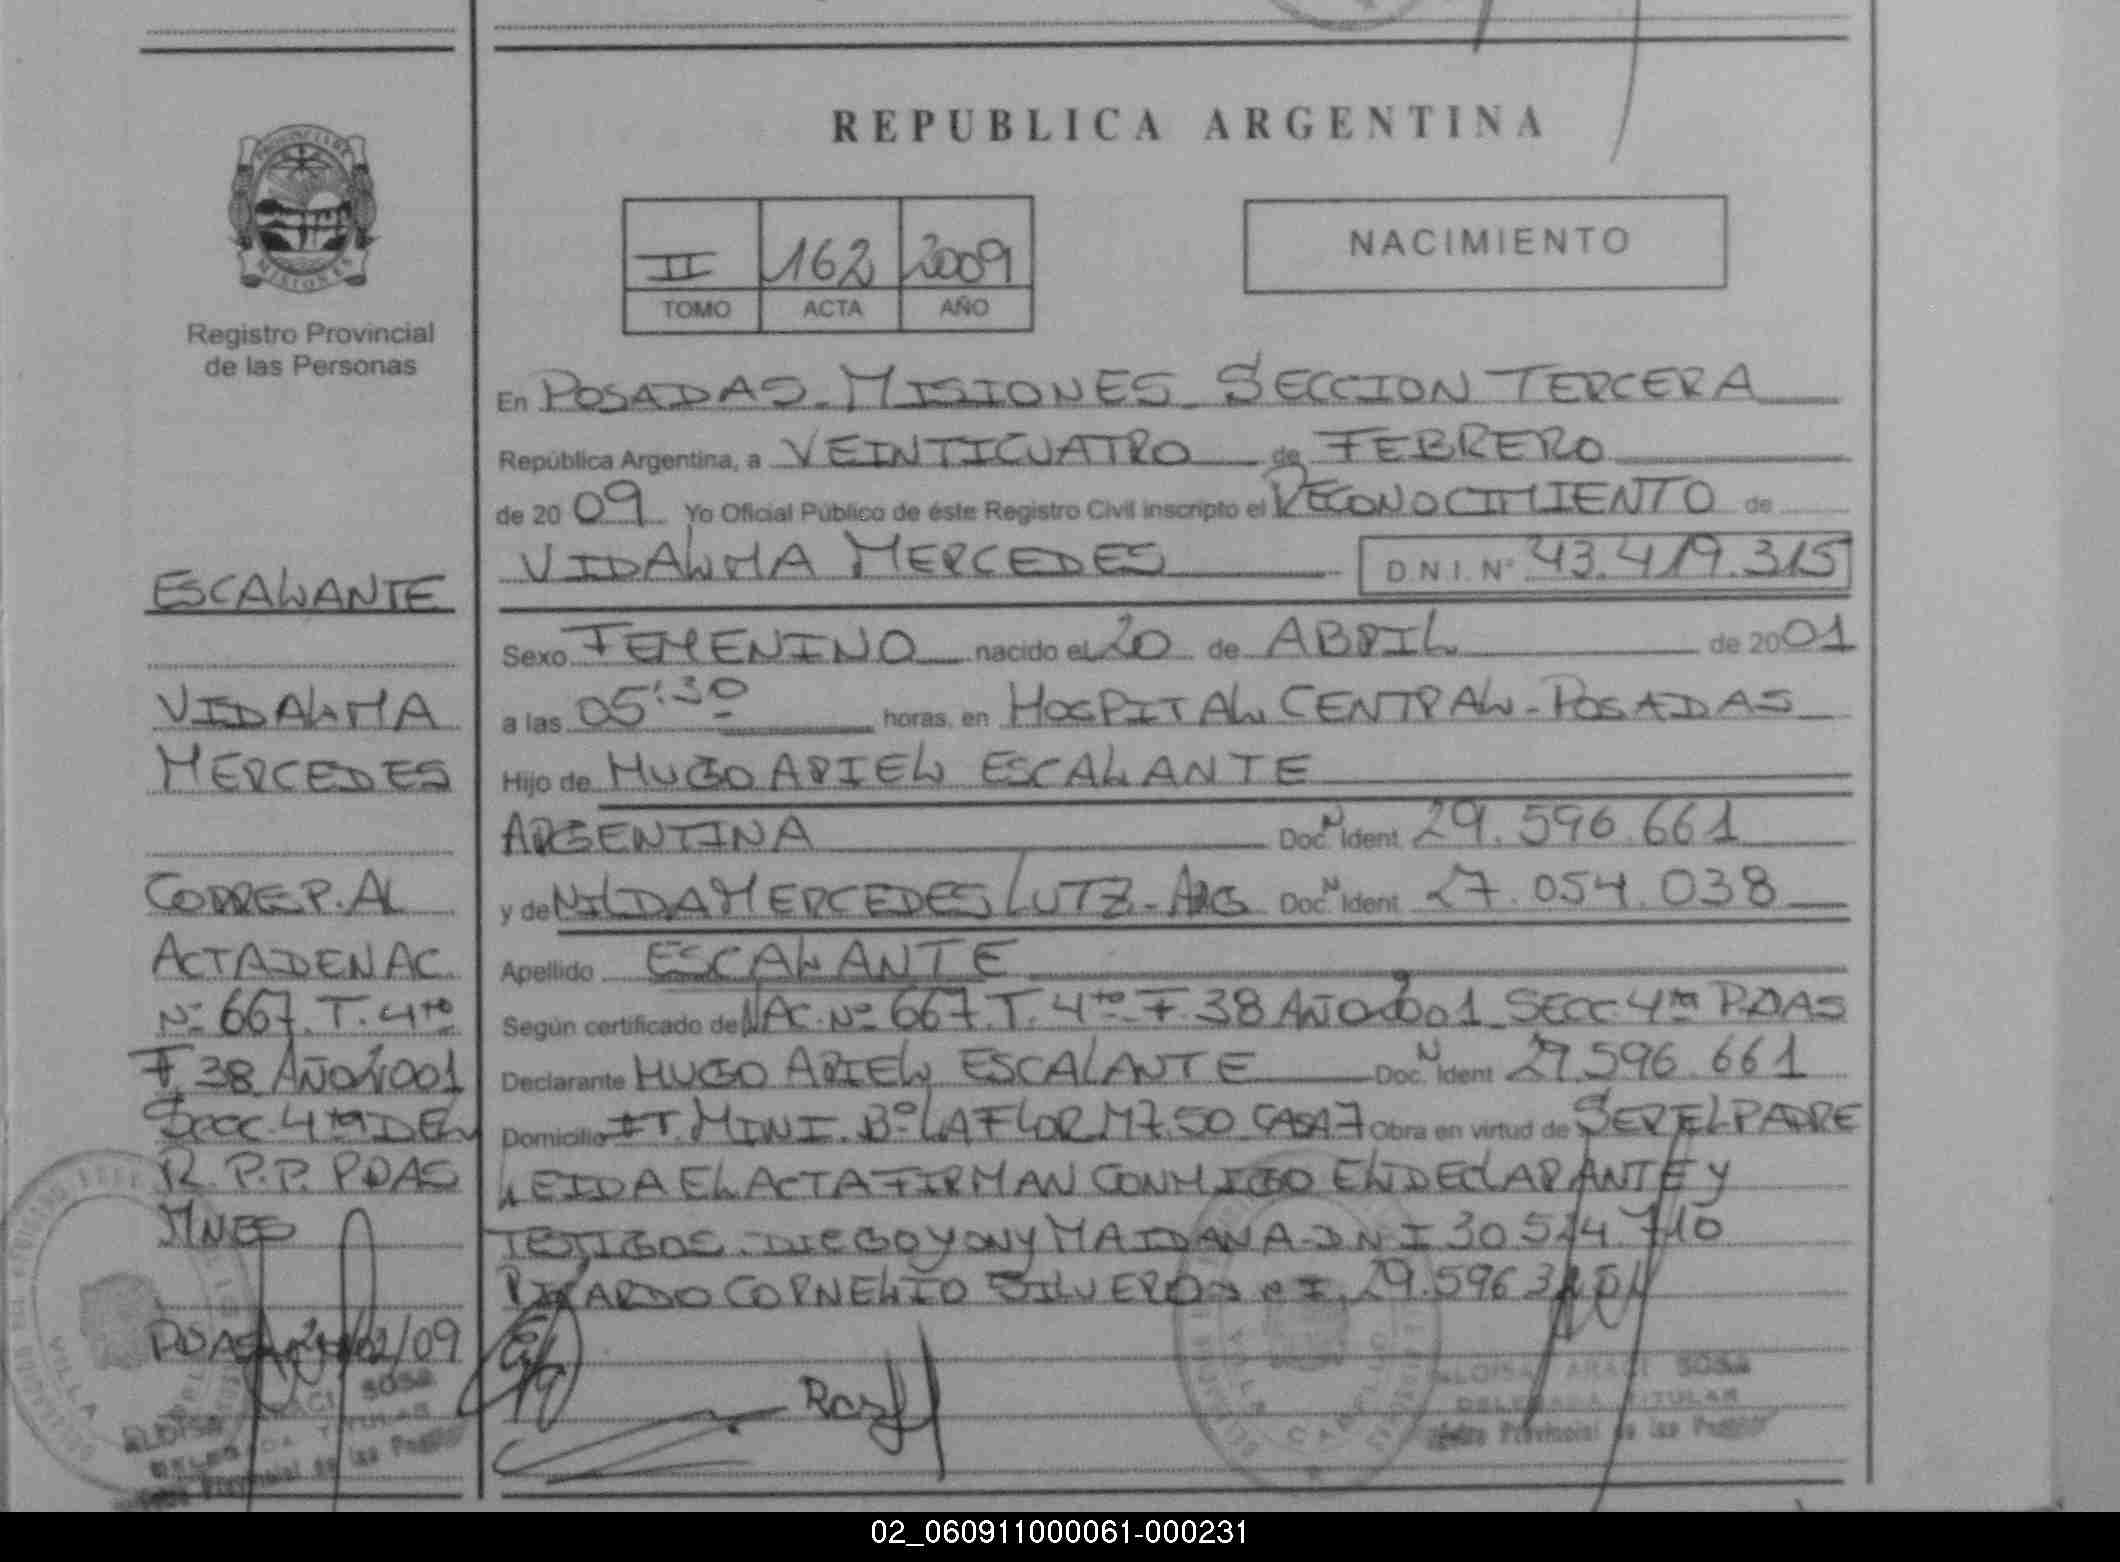 REPUBLICA ARGENTINA
II 162 2009
TOMO ACTA AÑO
NACIMIENTO
Registro Provincial
de las Personas
ESCALANTE
VIDALMA
MERCEDES
CORRESP. AL
ACTA DE NAC
Nº 667. T. 4to
F 38 AÑO 2001
SECC. 4ta DEL
R. P. P. PDAS
MNES
PDAS 24/02/09
En POSADAS - MISIONES - SECCION TERCERA
República Argentina, a VEINTICUATRO de FEBRERO
de 2009 Yo Oficial Público de éste Registro Civil inscripto el RECONOCIMIENTO de
VIDALMA MERCEDES D.N.I. Nº 43.419.315
Sexo FEMENINO nacido el 20 de ABRIL de 2001
a las 05:30 horas, en HOSPITAL CENTRAL - POSADAS
Hijo de HUGO ARIEL ESCALANTE
ARGENTINA Doc. N Ident 29.596.661
y de NILDA MERCEDES LUTZ - ARG Doc. N Ident 27.054.038
Apellido ESCALANTE
Según certificado de NAC. Nº 667. T. 4to F. 38 AÑO 2001 SECC. 4ta PDAS
Declarante HUGO ARIEL ESCALANTE Doc. N Ident 29.596.661
Domicilio IT. MINI. Bº LA FLOR MZ. 50 CASA 7 Obra en virtud de SER EL PADRE
LEIDA EL ACTA FIRMAN CONMIGO EL DECLARANTE Y
TESTIGOS. DIEGO YONY MAIDANA DNI 30.514.710
RICARDO CORNELIO SILVERO 29.596
ARACI SOSA
DELEGADA TITULAR
Provincial de las
ELOISA ARACI SOSA
DELEGADA TITULAR
Provincial de las
02_060911000061-000231